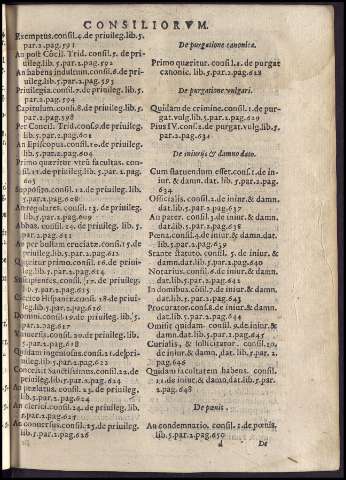 CONSILIORVM.
Exemptus.consil.4.de priuileg.lib.5.
par.2.pag.591
An post Cōcil. Trid. consil.5. de pri-
uileg.lib.5.par.2.pag.592
An habens indultum.consil.6.de pri-
uileg.lib.5.par.2.pag.593
Priuilegia.consil.7.de priuileg.lib.5.
par.2.pag.594
Capitulum.consil.8.de priuileg.lib.5.
par.2.pag.598
Per Concil. Trid.consil.9.de priuileg.
lib.5.par.2.pag.601
An Episcopus.consil.10.de priuileg.
lib.5.par.2.pag.604
Primo quæritur vtrū facultas. con-
sil.11.de priuileg.lib.5.par.2.pag.
605
Supposito.consil.12.de priuileg.lib.
5.par.2.pag.608
An regulares.consil.13.de priuileg.
lib.5.par.2.pag.609
Abbas.consil.14.de priuileg. lib.5.
par.2.pag.611
An per bullam cruciatæ.consil.15.de
priuileg.lib.5.par.2.pag.612
Quæritur primo.consil.16.de priui-
leg.lib.5.par.2.pag.614
Suscipientes.consil.17.de priuileg.
lib.5.par.2.pag.615
Clerico Hispaniæ.consil.18.de priui-
leg.lib.5.par.2.pag.616
Domini.consil.19.de priuileg. lib.5.
par.2.pag.617
Conuersis.consil.20.de priuileg.lib.
5.par.2.pag.618
Quidam ingeniosus.consil.21.de pri-
uileg.lib.5.par.2.pag.622
Concessit Sanctissimus.consil.22.de
priuileg.lib.5.par.2.pag.624
An prælatus. consil.23.de priuileg.
lib.5.par.2.pag.624
An clerici.consil.24.de priuileg.lib.
5.par.2.pag.625
An conuersus.consil.25.de priuileg.
lib.5.par.2.pag.626
De purgatione canonica.
Primo quæritur. consil.1.de purgat
canonic. lib.5.par.2.pag.628
De purgatione vulgari.
Quidam de crimine.consil.1.de pur-
gat.vulg.lib.5.par.2.pag.629
Pius IV.consil.2.de purgat.vulg.lib.5.
par.2.pag.634
De iniurijs & damno dato.
Cum statuendum esset.consil.1.de in-
iur.& damn.dat. lib.5.par.2.pag.
634
Officialis.consil.2.de iniur.& damn.
dat.lib.5.par.2.pag.637
An pater.consil.3.de iniur.& damn.
dat.lib.5.par.2.pag.638
Pœna.consil.4.de iniur.& damn.dat.
lib.5.par.2.pag.639
Stante statuto. consil. 5. de iniur. &
damn.dat.lib.5.par.2.pag.640
Notarius.consil.6.de iniur.& damn.
dat.lib.5.par.2.pag.642
In domibus.cōsil.7.de iniur.& damn.
dat.lib.5.par.2.pag.643
Procurator.consil.8.de iniur.& damn.
dat.lib.5.par.2.pag.644
Omissis quidam. consil.9.de iniur.&
damn.dat.lib.5.par.2.pag.645
Curialis, & sollicitator. consil.10.
de iniur.& damn.dat.lib.5.par.2.
pag.646
Quidam facultatem habens. consil.
11.de iniur.& damn.dat.lib.5.par.
2.pag.648
De pœnis.
An condemnatio. consil.1.de pœnis.
lib.5.par.2.pag.650
d De